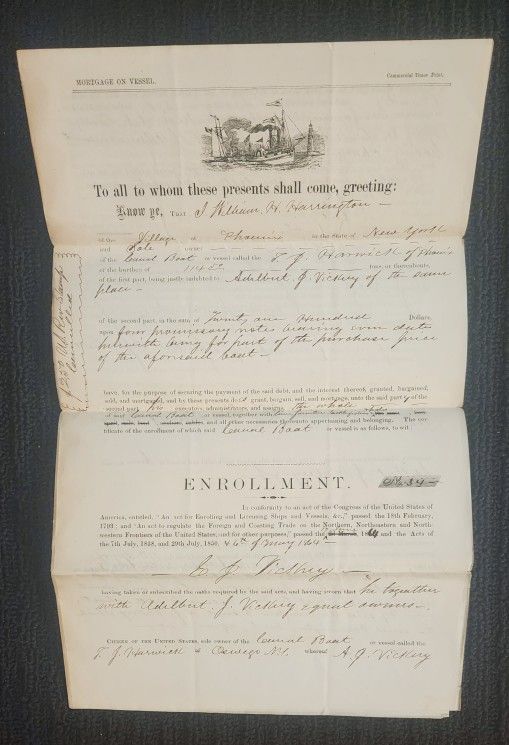 MORTGAGE ON VESSEL. Commercial Times Print.
To all to whom these presents shall come, greeting:
Know ye, THAT I William H. Harrington
of the Village of Phoenix in the State of New York
and Sole owner
of the Canal Boat or vessel called the T. J. Harwick of
of the burthen of tons, or thereabouts,
of the first part, being justly indebted to Adelbert J. Vickery of the same
place
of the second part, in the sum of Twenty one Hundred Dollars,
upon four promissory notes bearing even date
herewith being for part of the purchase price
of the aforesaid boat
have, for the purpose of securing the payment of the said debt, and the interest thereof, granted, bargained,
sold, and mortgaged, and by these presents do grant, bargain, sell, and mortgage, unto the said party of the
second part his executors, administrators, and assigns the whole
of said Canal Boat or vessel, together with
and all other necessaries thereunto appertaining and belonging. The cer-
tificate of the enrollment of which said Canal Boat or vessel is as follows, to wit:
ENROLLMENT. No. 34
In conformity to an act of the Congress of the United States of
America, entitled, "An act for Enroling and Licensing Ships and Vessels, &c.," passed the 18th February,
1793; and "An act to regulate the Foreign and Coasting Trade on the Northern, Northeastern and North
western Frontiers of the United States, and for other purposes," passed and the Acts
of the 7th July, 1838, and 29th July, 1850, & 6th of May 1864
Vickery
having taken or subscribed the oaths required by the said acts, and having sworn that he together
with Adelbert J. Vickery equal owners
CITIZEN OF THE UNITED STATES, sole owner of the Canal Boat or vessel called the
T. J. Harwick of Oswego N.Y. whereof A. J. Vickery